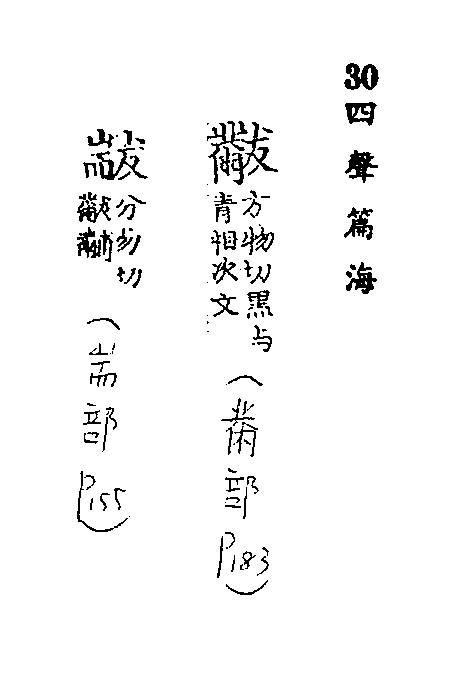 30四聲篇海
黻
方物切黑与
青相次文
(黹部
P183)
分勿切
(耑部
P155)